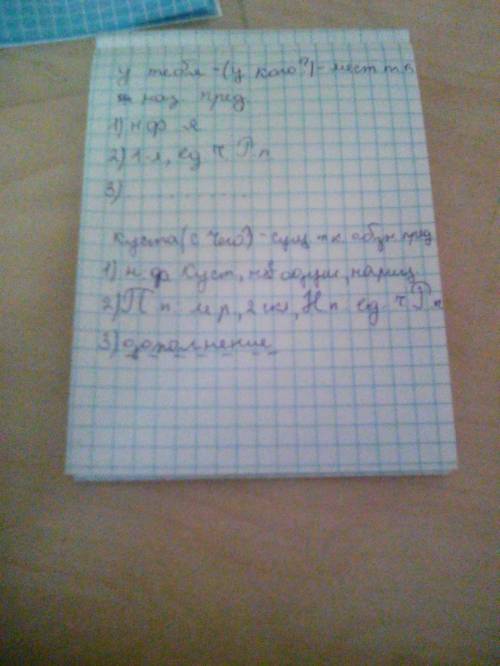 у тебя - (у кого?) - мест т.к
наз. пред.
1) н.ф я
2) 1 л, ед ч Р п
3) ............
Куста (с чего) - сущ т.к. обозн пред
1) н ф Куст, не одуш, нариц
2) П п м р, 2 скл, Н п ед ч Р п
3) дополнение